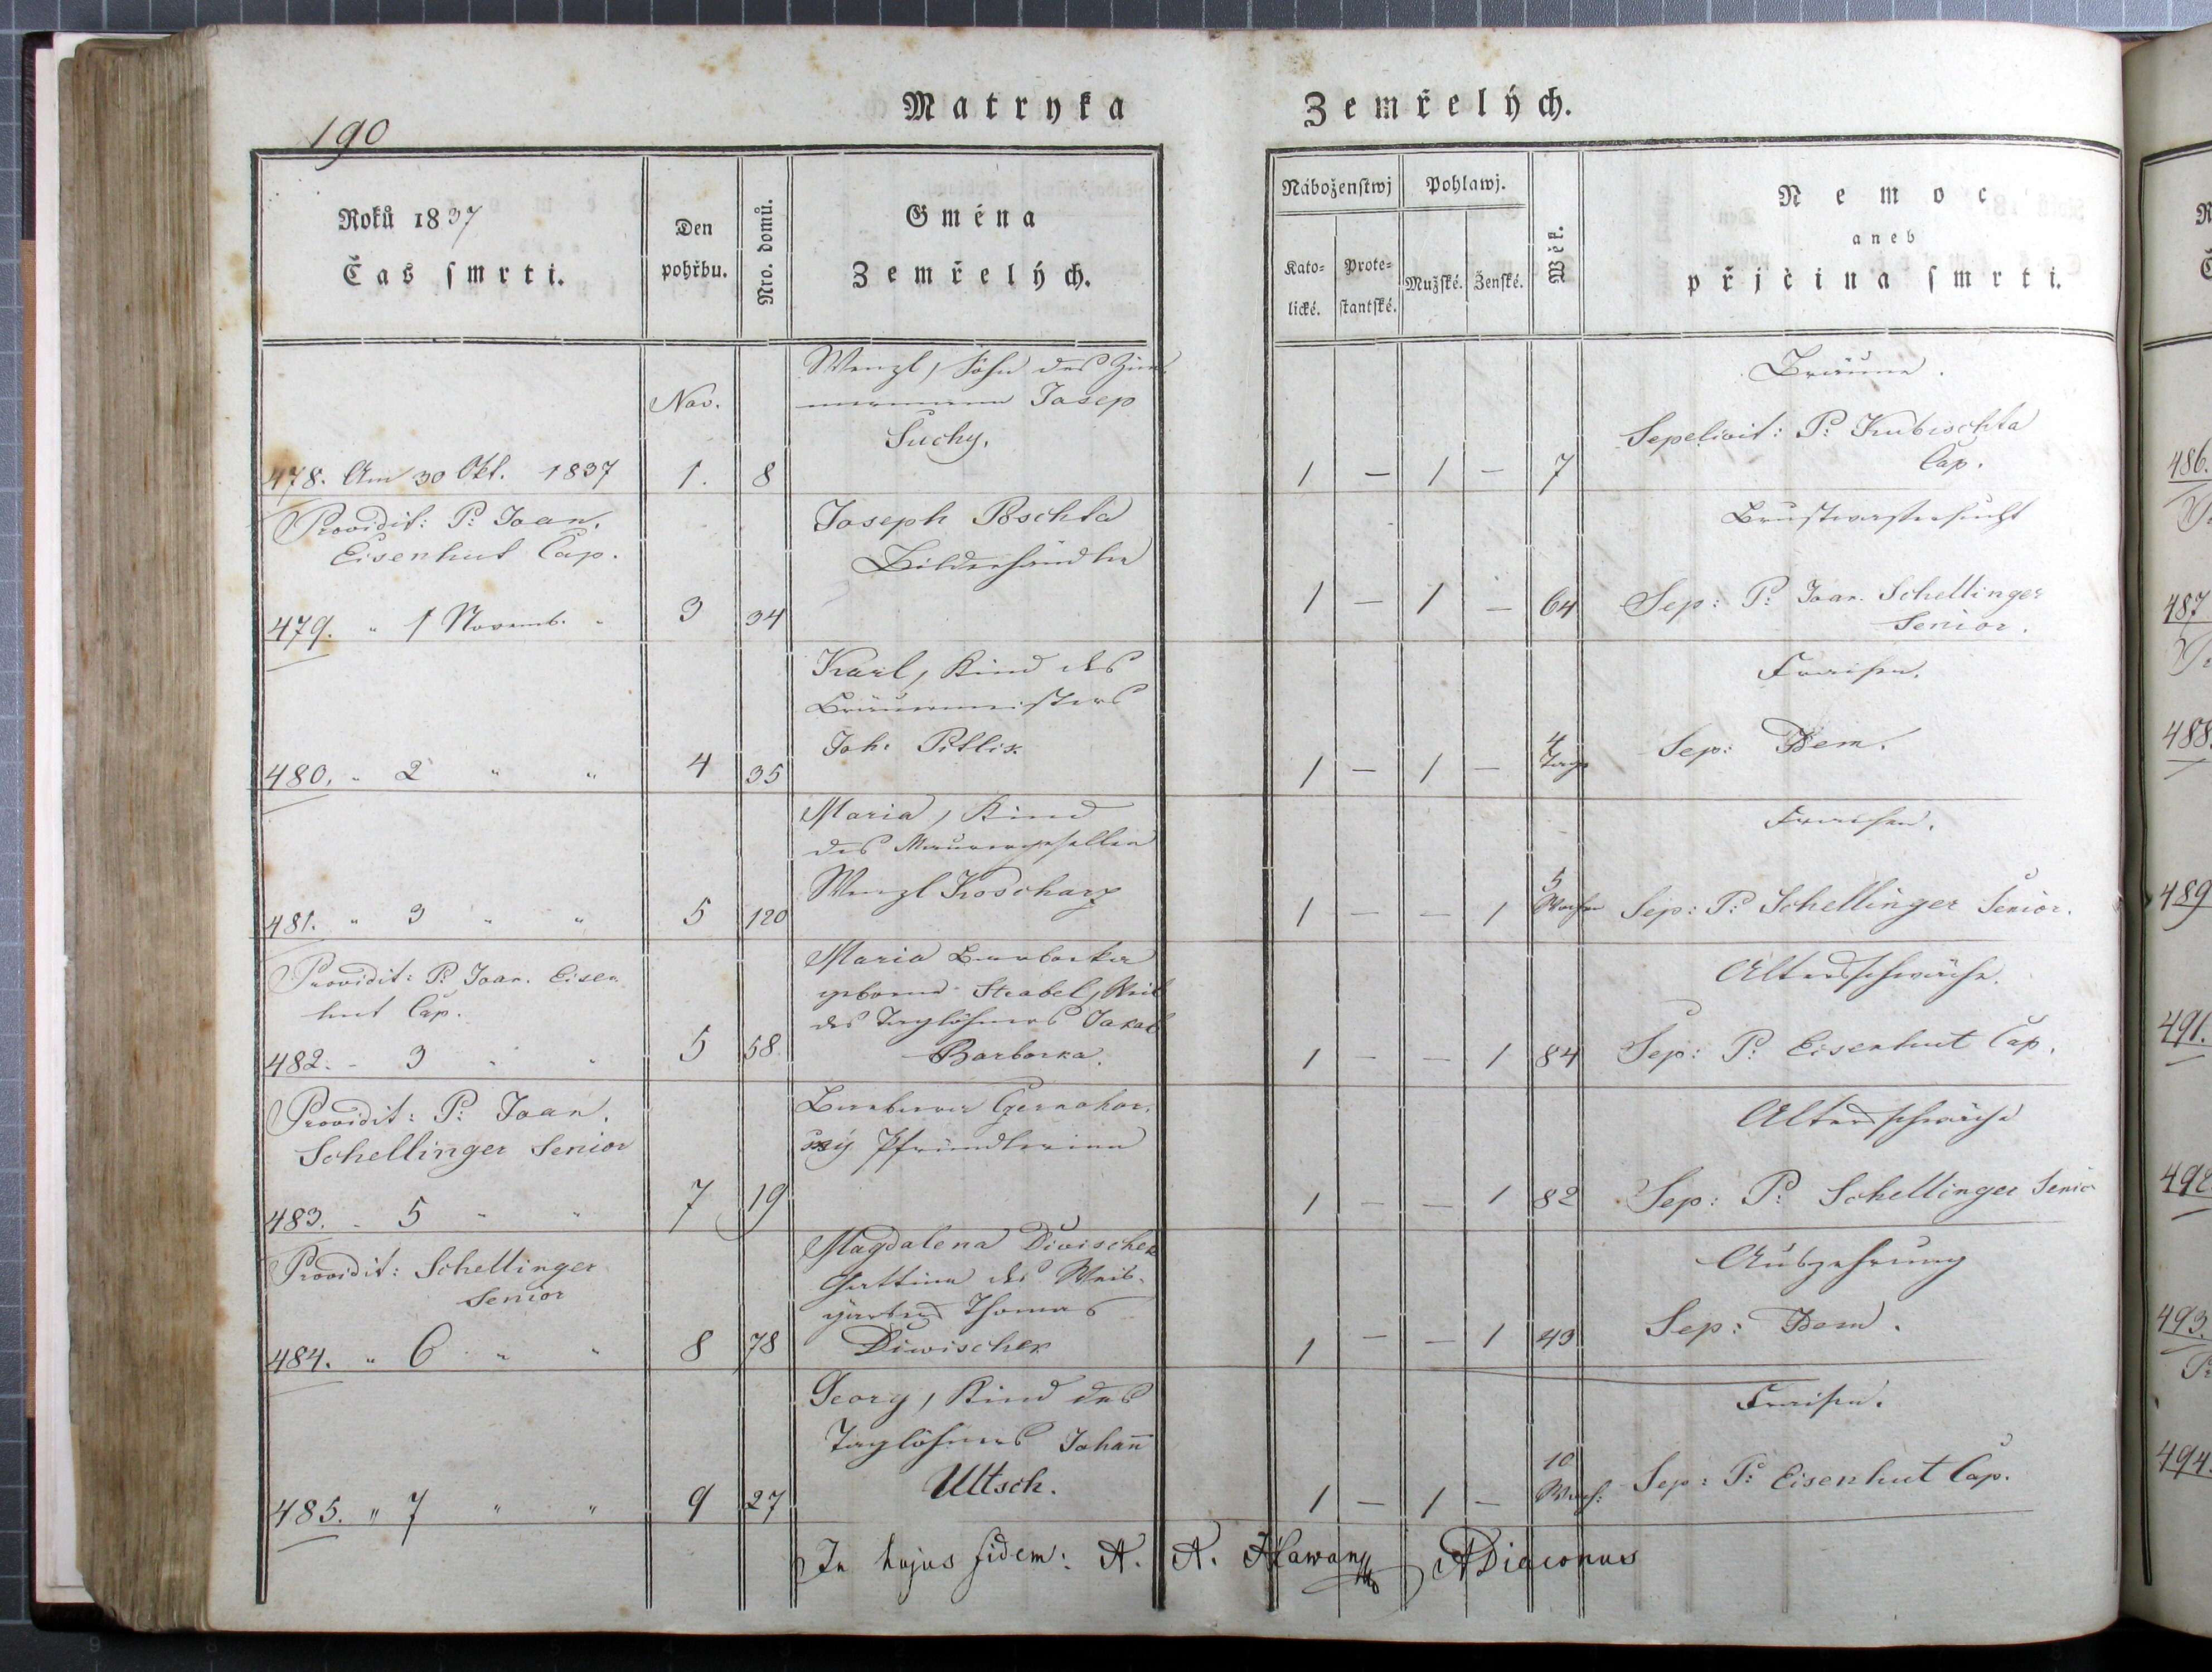 Matryka Zemřelých.
190
Roků 1837
Čas smrti.
Den
pohřbu.
Nro. domů.
Gména
Zemřelých.
Náboženstwj
Kato-
lické.
Prote-
stantské.
Pohlawj.
Mužské.
Ženské.
Wěk.
Nemoc
aneb
přjčina smrti.
Wenzl, Sohn des Zim
mermann Josep
Suchy.
Nov.
478. Am 30 Okt. 1837 1. 8
1 — 1 — 7
Bräune.
Sepelivit: P: Kubischta
Cap.
Providit: P: Joan.
Eisenhut Cap.
479. " 1 Novemb. " 3 34
Joseph Poschta
Bilderhändler
1 — 1 — 64
Brustwassersucht
Sep: P: Joan. Schellinger
Senior.
480. " 2 " " 4 35
Karl, Kind des
Bräuermeisters
Joh: Pitlik
1 — 1 — 4
Tage
Fraisen.
Sep: Idem.
481. " 3 " " 5 120
Maria, Kind
des Maurergesellen
Wenzl Koscharz
1 — — 1 5
Wochen
Fraisen.
Sep: P: Schellinger Senior.
Providit: P: Joan. Eisen
hut Cap.
482. " 3 " " 5 58
Maria Barborka
geborne Strabel, Weib
des Taglöhners Jakob
Barborka.
1 — — 1 84
Altersschwäche.
Sep: P: Eisenhut Cap.
Providit: P: Joan.
Schellinger Senior
483. " 5 " " 7 19
Barbara Czernohor.
sky Pfründlerinn
1 — — 1 82
Altersschwäche
Sep: P: Schellinger Senior
Providit: Schellinger
Senior
484. " 6 " " 8 78
Magdalena Diwischek
Gattinn des Weis-
gärbers Thomas
Diwischek
1 — — 1 43
Auszehrung
Sep: Idem.
485. " 7 " " 9 27
Georg, Kind des
Taglöhners Johann
Ultsch.
1 — 1 — 10
Woch:
Fraisen.
Sep: P: Eisenhut Cap.
In hujus fidem: A. A. ADiaconus
486.
487
488
489
491.
492
493.
494.